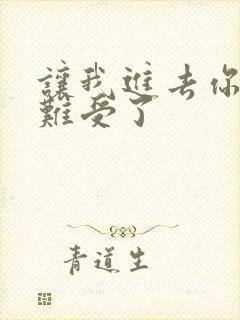 讓我進去你
難受了
青道生